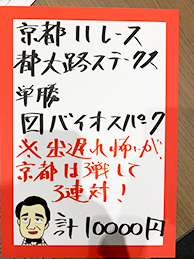 京都11レース
都大路ステークス
単勝
図バイオスパーク
※出遅れ怖いが、
京都は3戦して
3連対!
計10000円